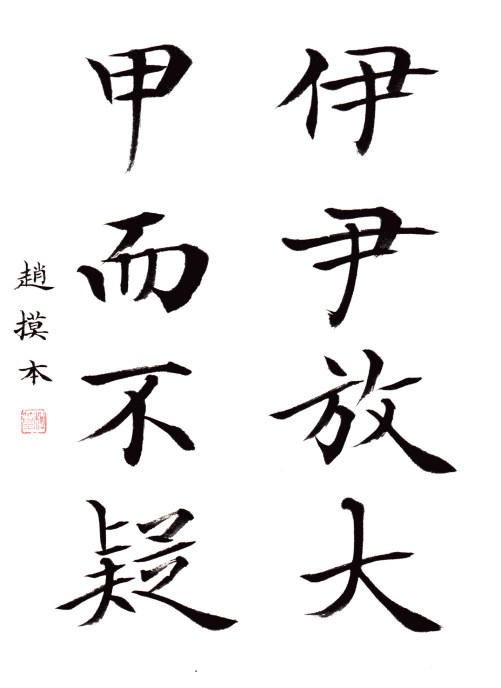 伊尹放大
甲而不疑
趙摸本